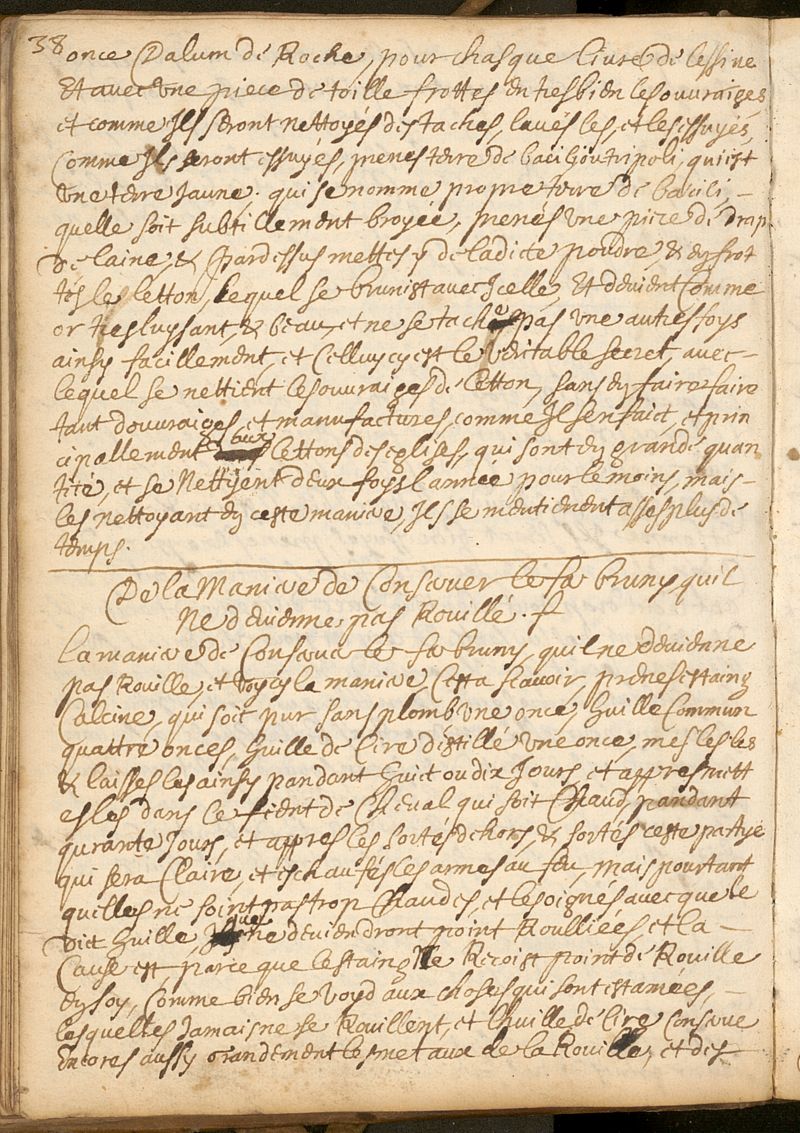 38
once Dalum de Roche, pour chasque livre de lessive
Et avec une piece de toille frottes en tresbien les ouvraiges
et comme Ils seront nettoyés des taches, lavés les, et les essuyés,
Comme Ils seront essuyés, prenes terre de bacili ou tripoli, qui est
une terre Jaune. qui se nomme propre terre de bacili, –
quelle soit subtillement broyée, prenés une piece de drap
de laine, & pardessus mettes y de ladicte poudre & en frot
tés le letton, lequel se brunist avec Icelle, Et devient Comme
or tresluysant, & beau, et ne se tache pas une autresfoys
ainsy facillement, et Celluy cy est le veritable secret, avec –
lequel se nettient les ouvraiges de letton, sans en faire faire
tant douvraiges, et manufactures, comme Il sen faict, et prin
cipallement aux lettons des eglises, qui sont en grande quan
tité, et se Nettyent deux foys lannée pour le moins, mais –
les nettoyant en ceste maniere, Ils se meutienent asses plus de
temps.
De la Maniere de Conserver le fer bruny quil
Ne devienne pas Rouillé.
la maniere de Conserver le fer bruny, quil ne devienne
pas Rouille, et voycy la maniere, Cest a scavoir, prenes estaing
Calcine, qui soit pur sans plomb une once, huille Commun
quattre onces, huille de Cire distillé une once, mesles les
& laisses les ainsy pandant huict ou dix Jours, et appres mett
es les dans le fient de Cheval qui soit Chaud, pandant
quarante Jours, et appres les sortés dehors, & sortés ceste partye
qui sera Claire, et eschaufés les armes au feu, mais pourtant
quelles ne soint pas trop Chaudes, et les oignés avec que le
dict huille que ne deviendront point Roulliées, et la –
Cause est parce que lestaing Ne Recoist point de Rouille
en soy, Comme bien se voyd aux choses qui sont estamées, –
lesquelles Jamais ne se Rouillent, et lhuille de Cire Conserve
Encores aussy grandement les metaux de la Rouille, et des